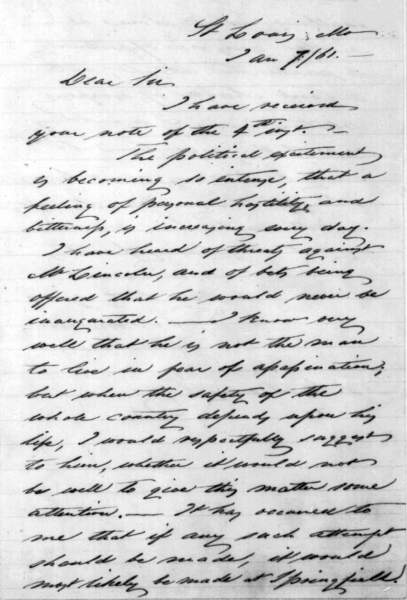 St Louis, Mo
Jan 7/61.—
Dear Sir
I have received
your note of the 4th inst.—
The political excitement
is becoming so intense, that a
feeling of personal hostility, and
bitterness, is increasing every day.
I have heard of threats against
Mr Lincoln, and of bets being
offered that he would never be
inaugurated. — I know very
well that he is not the man
to live in fear of assassination;
but when the safety of the
whole country depends upon his
life, I would respectfully suggest
to him, whether it would not
be well to give this matter some
attention.— It has occurred to
me that if any such attempt
should be made, it would
most likely be made at Springfield.